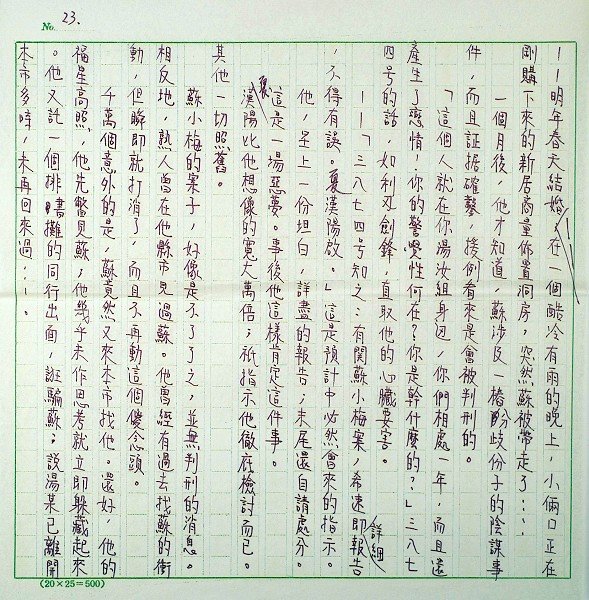 No. 23.
——明年春天結婚。在一個酷冷有雨的晚上，小倆口正在
剛購下來的新居商量佈置洞房，突然蘇被帶走了……
一個月後，他才知道，蘇涉及一樁酚歧份子的陰謀事
件，而且証据確鑿，援例看來是會被判刑的。
「這個人就在你湯汝組身边，你們相處一年，而且還
產生了恋情！你的警覺性何在？你是幹什麼的？」三八七
四号的話，如利刃劍鋒，直取他的心臟要害。
——「三八七四号知之：有関蘇小梅案，希速即詳細報告
，不得有誤。夏漢陽啟。」這是預計中必然會來的指示。
他，呈上一份坦白，詳盡的報告；末尾還自請處分。
這是一場惡夢。事後他這樣肯定這件事。
夏漢陽比他想像的寬大萬倍；祇指示他徹底檢討而已。
其他一切照舊。
蘇小梅的案子，好像是不了了之，並無判刑的消息。
相反地，熟人曾在他縣市見過蘇。他曾經有過去找蘇的衝
動，但瞬即就打消了，而且不再動這個傻念頭。
千萬個意外的是，蘇竟然又來本市找他。還好，他的
福星高照，他先瞥見蘇；他幾乎未作思考就立即躲藏起來
。他又託一個排書攤的同行出面，誑騙蘇；說湯某已離開
本市多時，未再回來過……。
(20×25=500)